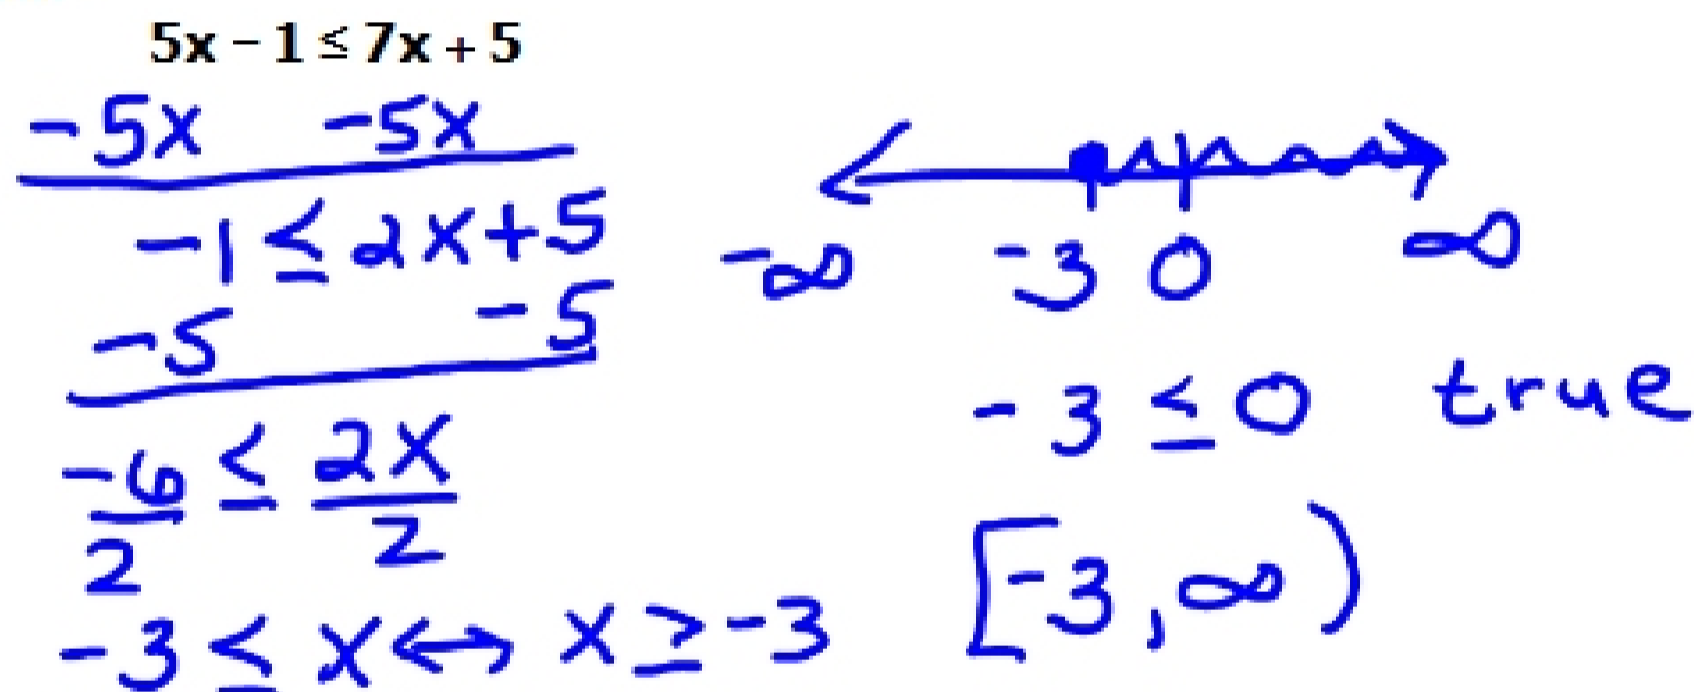 5x – 1 ≤ 7x + 5
-5x -5x
-1 ≤ 2x+5
-5 -5
-6/2 ≤ 2x/2
-3 ≤ x ↔ x ≥ -3
-∞ -3 0 ∞
-3 ≤ 0 true
[-3, ∞)